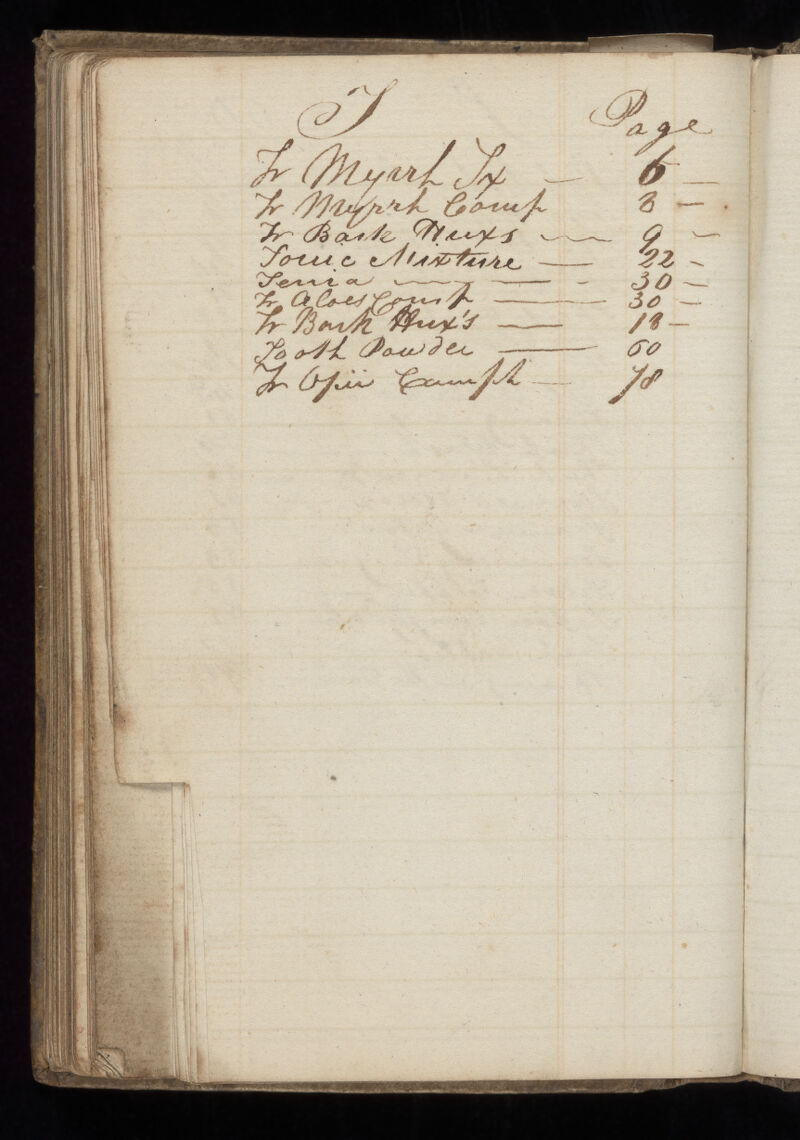 T Page
Tr Myrrh Tx — 6 —
Tr Myrrh Comp 8 —
Tr Bark Huxs — 9 —
Tonic Mixture — 22 —
Tenia — — - 30 —
Tr Aloes Comp — 30 —
Tr Bark Hux's — 18 —
Tooth Powder — 60
Tr Opii Camph — 78